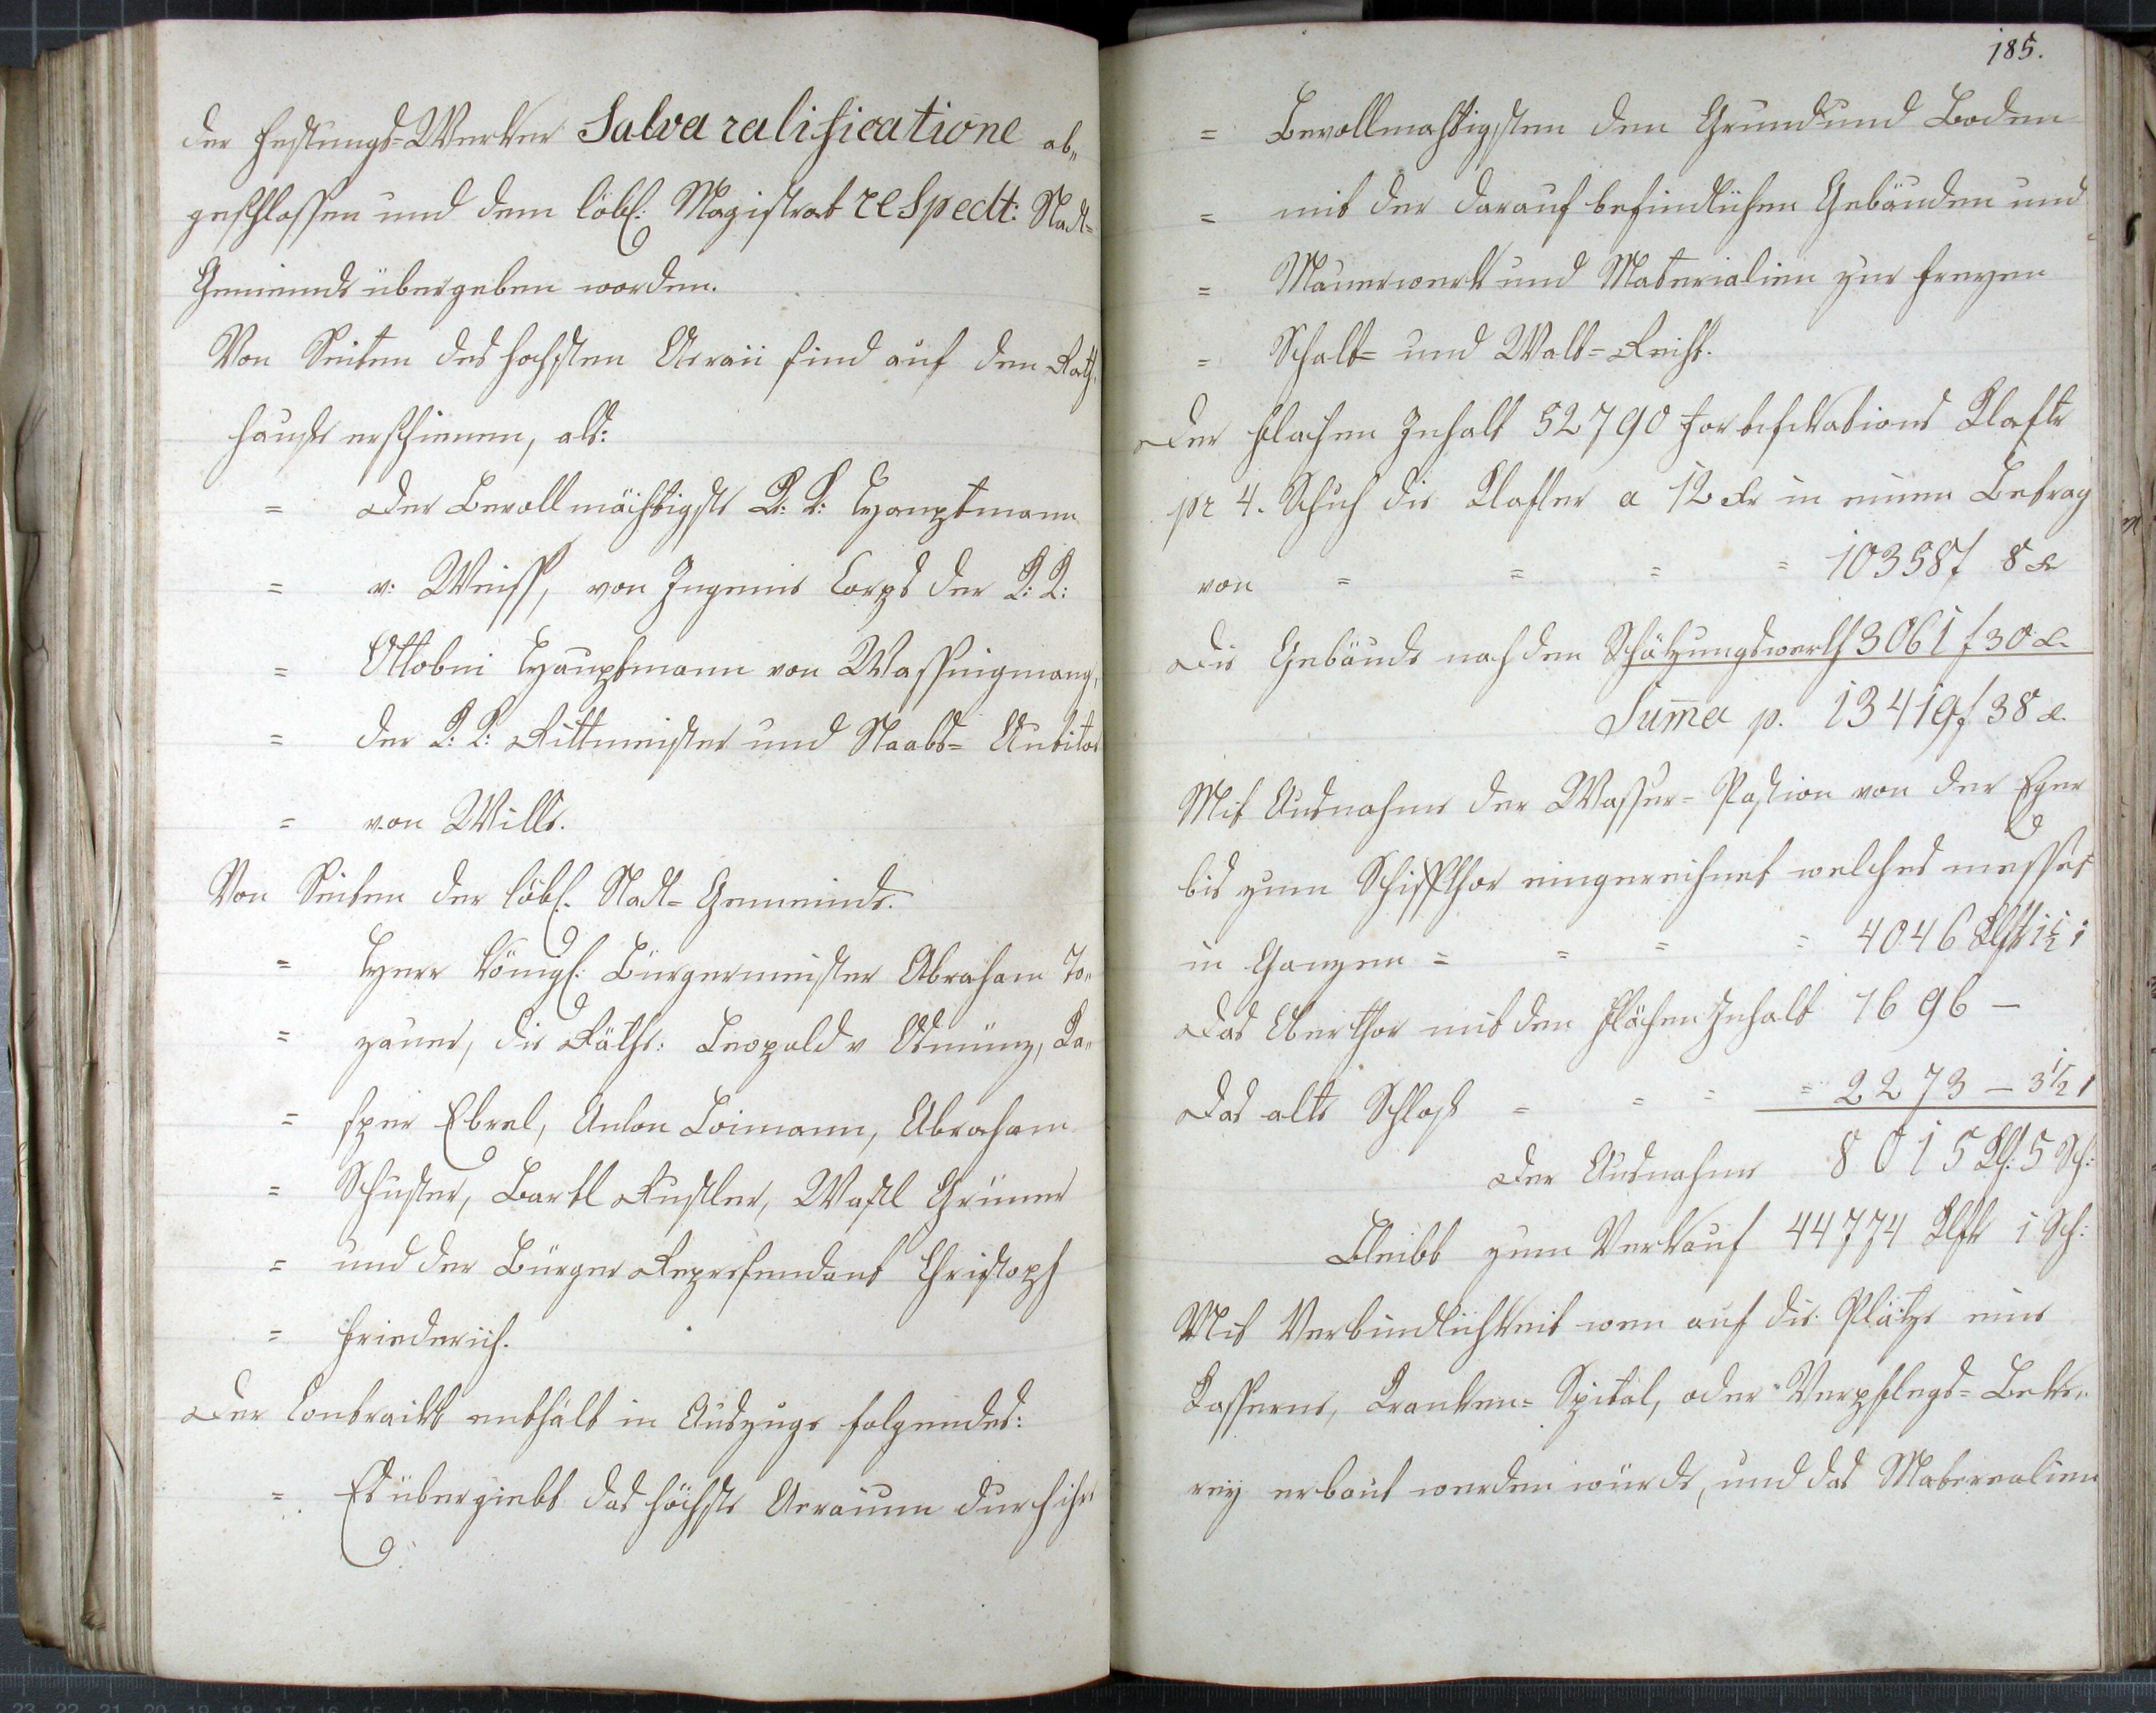 der Festungs-Werker Salva ralificatione ab„
geschlossen und dem löbl: Magistrat respectt: Stadt=
Gemeinde übergeben worden.
Von Seiten des hochsten Aeraii sind auf dem Rath„
hauße erschienen, als:
= Der Bevollmächtigste K: K: Hauptmann
= v: Weiss, von Ingenie Corps der K: K:
= Hauptmann von
= der K: K: Rittmeister und Staabs= Auditor
= von Wills.
Von Seiten der löbl. Stadt= Gemeinde.
= Herr königl: Bürgermeister Abraham To„
= zauer, die Räthe: Leopold v Ka„
= sper Ebrel, Anton Loimann, Abraham
= Schuster, Bartl Rustler, Wastl Grüner
= und der Bürger Represendant Christoph
= Friederich.
Der Contrackt enthält in Auszuge folgendes:
= Es übergiebt das höchste Aeraium durch ihre
185.
= Bevollmachtigsten den Grund und Boden
= mit der darauf befindlichen Gebäuden und
= Mauerwerk und Materialien zur freyen
= Schalt= und Walt=Recht.
Der flachen Inhalt 52790 fortifikations Klaftr
pr 4. Schuh die Klafter a 12 xr in einem Betrag
von = = = = 10358f 8 x
Die Gebäude nach den Schätzungswerth 3061 f 30 x.
Sum̄a p. 13419f 38 x.
Mit Ausnahme der Wasser= Pastion von der Eger
bis zum Schiffthor eingereichnet welches messet
in Ganzen = = = = 4046 Klftr 1½ i
Das Oberthor mit den flächen Inhalt 1696 —
Das alte Schloß = = = = 2273 — 3½ i
Der Ausnahme 8015 Kl: 5 Sch:
Bleibt zum Verkauf 44774 Klftr 1 Sch:
Mit Verbindlichkeit wen auf die Plätze eine
Casserne, Kranken= Spital, oder Verpflegs= Beke„
rey erbaut werden würde, und das Materealien